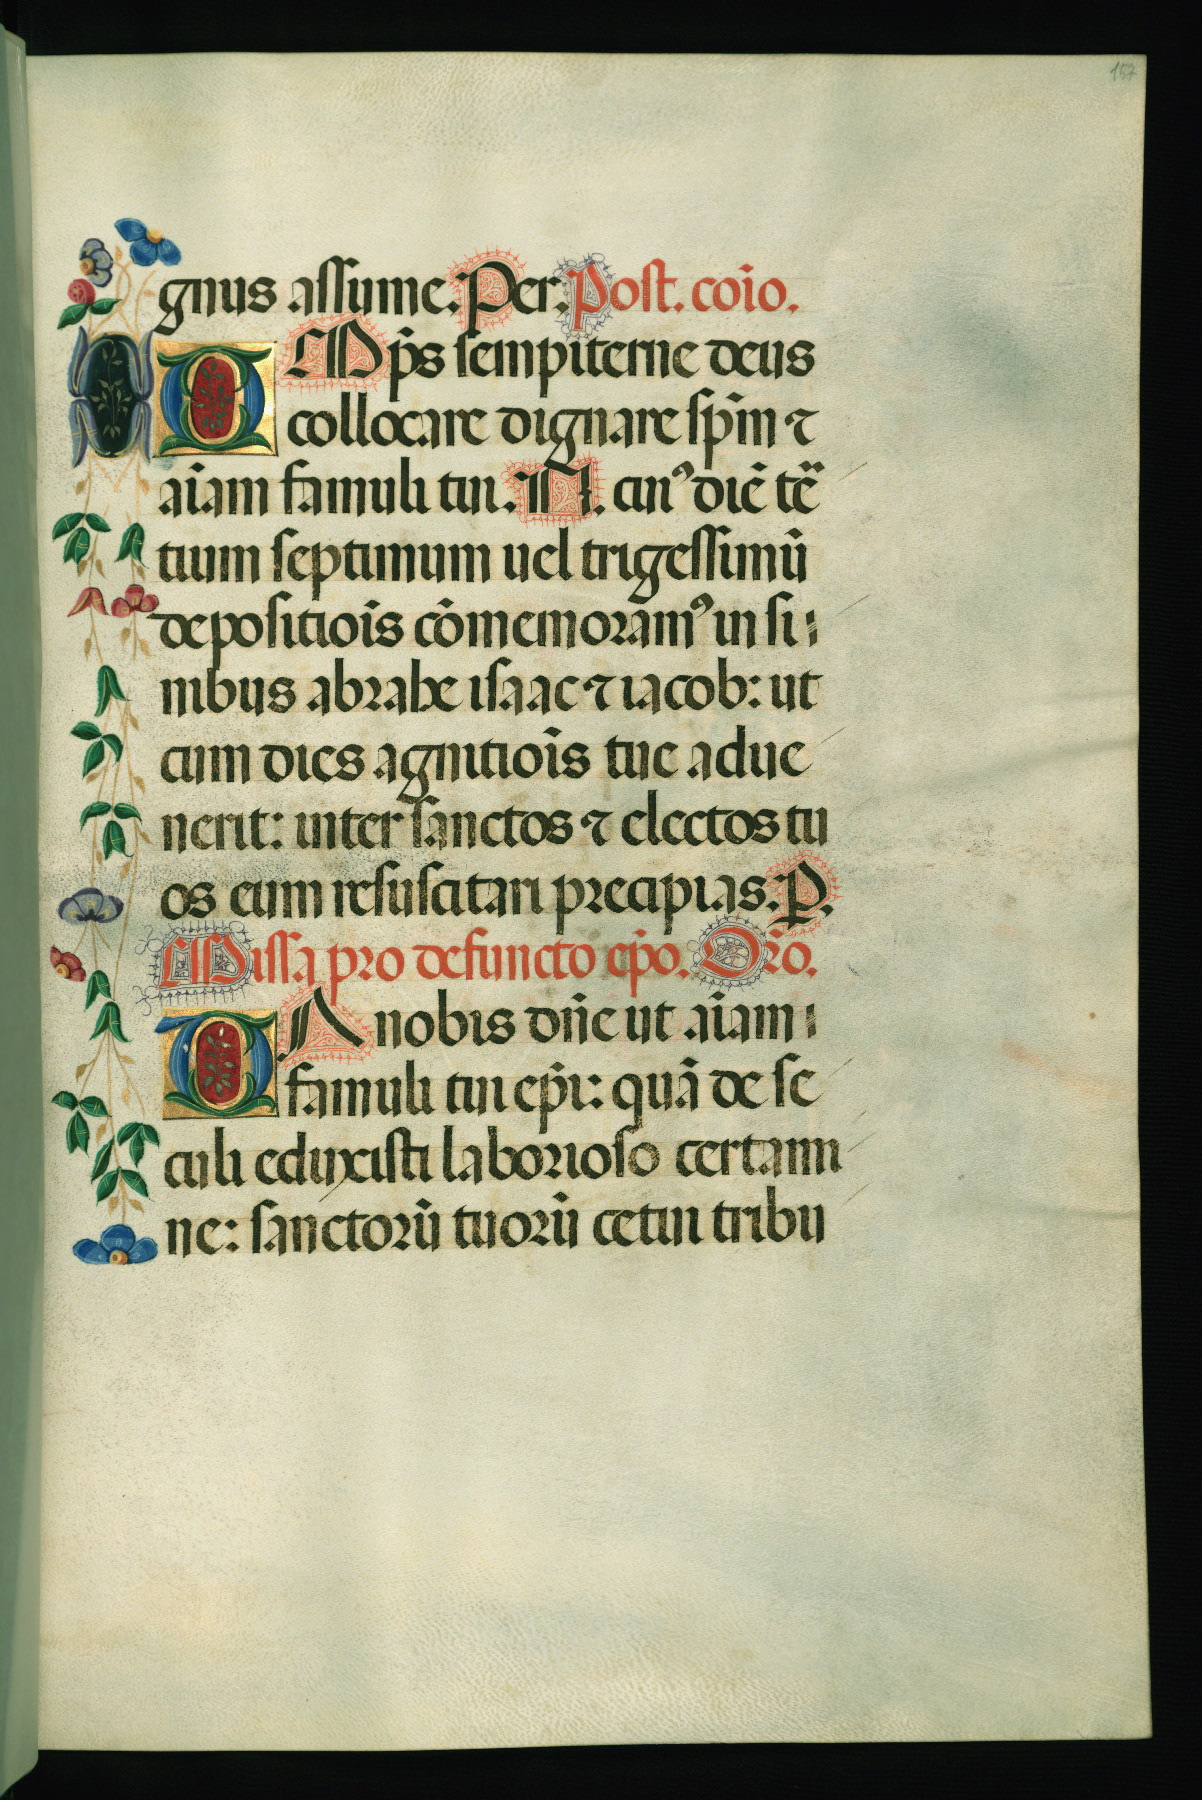 157
gnus assume. Per. Post. coīo.
OMp̄s sempiterne deus
collocare dignare sp̄m ⁊
aīam famuli tui. N. cuiꝰ diē tē
tium septimum uel trigessimū
depositiōis cōmemoramꝰ in si
nibus abrahe isaac ⁊ iacob: ut
cum dies agnitiōis tue adue
nerit: inter sanctos ⁊ electos tu
os eum resuscitari precipias. P.
Missa pro defuncto ep̄o. Oro.
DA nobis dn̄e ut aīam
famuli tui ep̄i: quā de se
culi eduxisti laborioso certami
ne: sanctorū tuorū cetui tribu